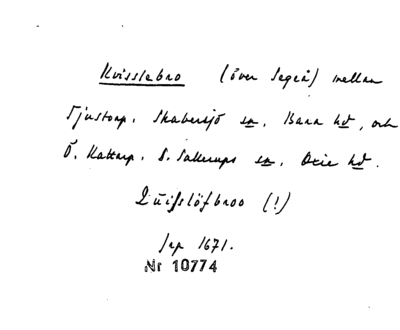 Kvisslebro (över Segeå) mellan
Tjustorp, Skabersjö sn, Bara hd, och
Ö. Kattarp, V. Sallerups sn, Oxie hd.
Quisslöfbroo (!)
Jrp 1671.
Nr 10774